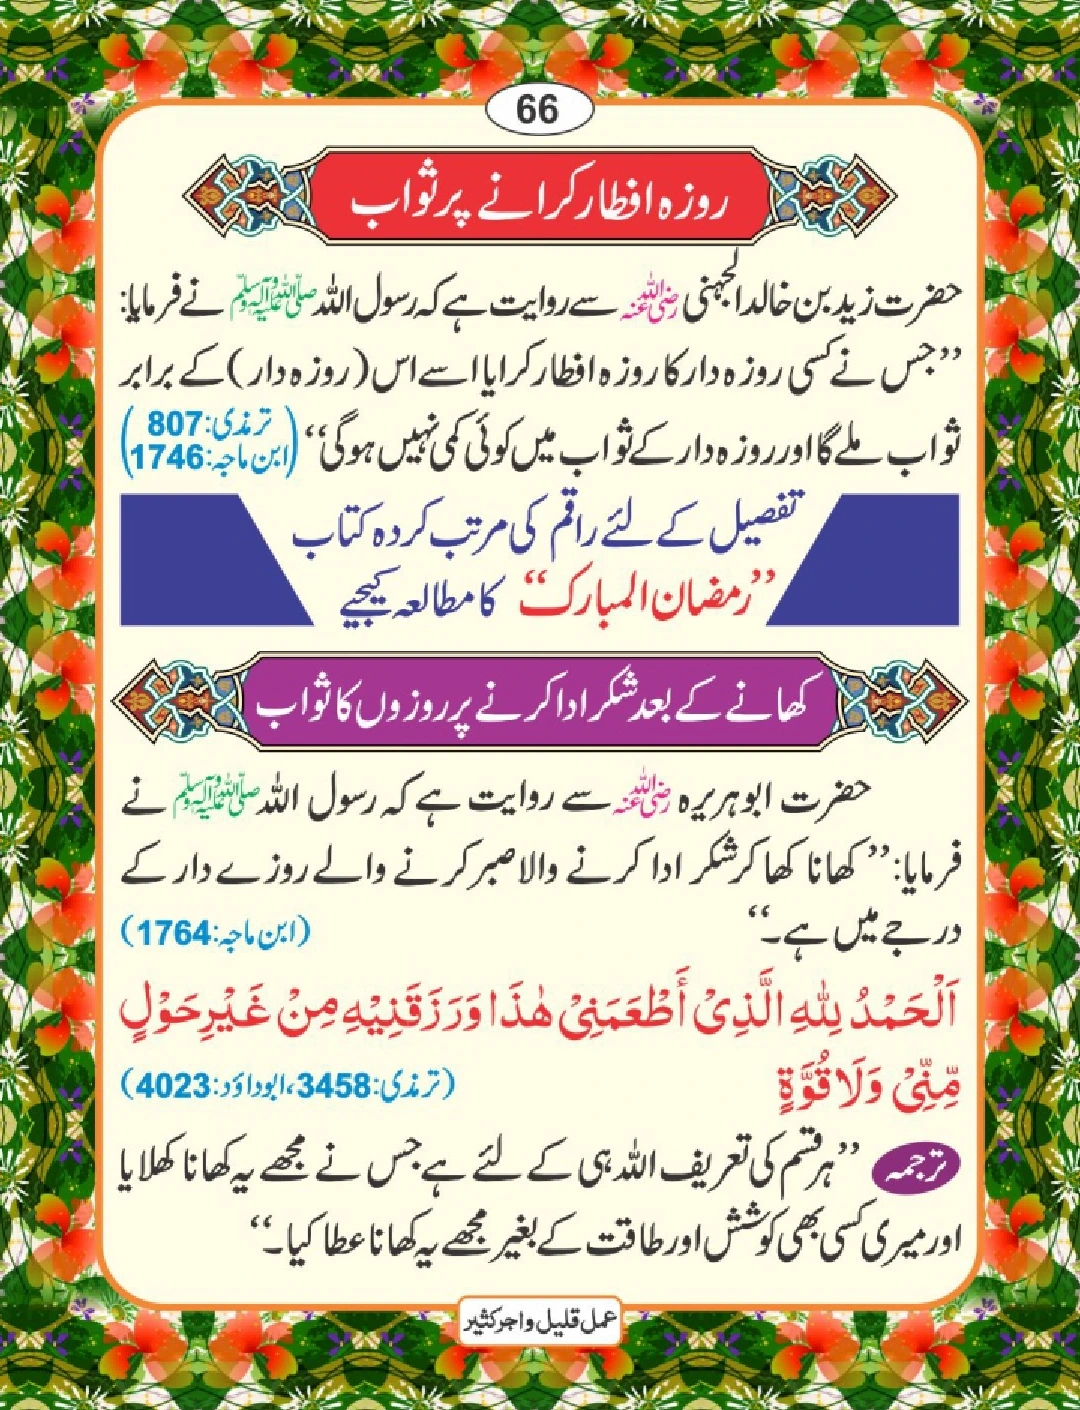 66
روزہ افطار کرانے پر ثواب
حضرت زید بن خالد الجہنی رضی اللہ عنہ سے روایت ہے کہ رسول اللہ صلی اللہ علیہ وآلہ وسلم نے فرمایا:
”جس نے کسی روزہ دار کا روزہ افطار کرایا اسے اس (روزہ دار) کے برابر
ثواب ملے گا اور روزہ دار کے ثواب میں کوئی کمی نہیں ہوگی“ (ترمذی: 807
ابن ماجہ: 1746)
تفصیل کے لئے راقم کی مرتب کردہ کتاب
”رمضان المبارک“ کا مطالعہ کیجیے
کھانے کے بعد شکر ادا کرنے پر روزوں کا ثواب
حضرت ابو ہریرہ رضی اللہ عنہ سے روایت ہے کہ رسول اللہ صلی اللہ علیہ وآلہ وسلم نے
فرمایا: ”کھانا کھا کر شکر ادا کرنے والا صبر کرنے والے روزے دار کے
درجے میں ہے۔“ (ابن ماجہ: 1764)
اَلْحَمْدُ لِلّٰهِ الَّذِیْ أَطْعَمَنِیْ هٰذَا وَرَزَقَنِیْهِ مِنْ غَیْرِ حَوْلٍ
مِّنِّیْ وَلَا قُوَّةٍ (ترمذی: 3458، ابوداؤد: 4023)
ترجمہ ”ہر قسم کی تعریف اللہ ہی کے لئے ہے جس نے مجھے یہ کھانا کھلایا
اور میری کسی بھی کوشش اور طاقت کے بغیر مجھے یہ کھانا عطا کیا۔“
عمل قلیل و اجر کثیر